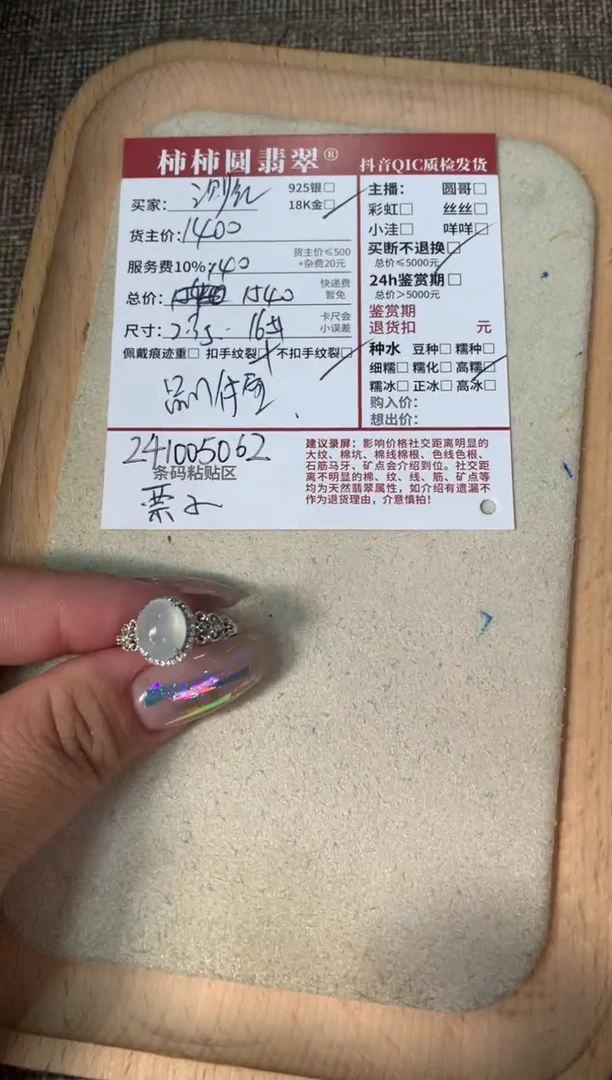 柿柿圆翡翠® 抖音QIC质检发货
买家: 925银□
18K金□
货主价: 1400
货主价≤500
+杂费20元
服务费10%: 140
快递费
暂免
总价: 1540
卡尺会
小误差
尺寸: 2.3g. 16#
佩戴痕迹重□ 扣手纹裂□ 不扣手纹裂□
241005062
条码粘贴区
票
主播: 圆哥□
彩虹□ 丝丝□
小洼□ 咩咩□
买断不退换□
总价≤5000元
24h鉴赏期□
总价>5000元
鉴赏期
退货扣 元
种水 豆种□ 糯种□
细糯□ 糯化□ 高糯□
糯冰□ 正冰□ 高冰□
购入价:
想出价:
建议录屏: 影响价格社交距离明显的
大纹、棉坑、棉线棉根、色线色根、
石筋马牙、矿点会介绍到位。社交距
离不明显的棉、纹、线、筋、矿点等
均为天然翡翠属性，如介绍有遗漏不
作为退货理由，介意慎拍！